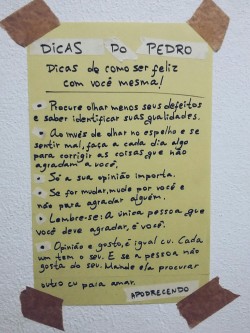 DICAS DO PEDRO
Dicas de como ser feliz
com você mesma!
• Procure olhar menos seus defeitos
e saber identificar suas qualidades.
• Ao invés de olhar no espelho e se
sentir mal, faça a cada dia algo
para corrigir as coisas que não
agradam a você.
• Só a sua opinião importa.
• Se for mudar, mude por você e
não para agradar alguém.
• Lembre-se: A única pessoa que
você deve agradar, é você.
• Opinião e gosto, é igual cu. Cada
um tem o seu. E se a pessoa não
gosta do seu. Mande ela procurar
outro cu para amar.
APODRECENDO